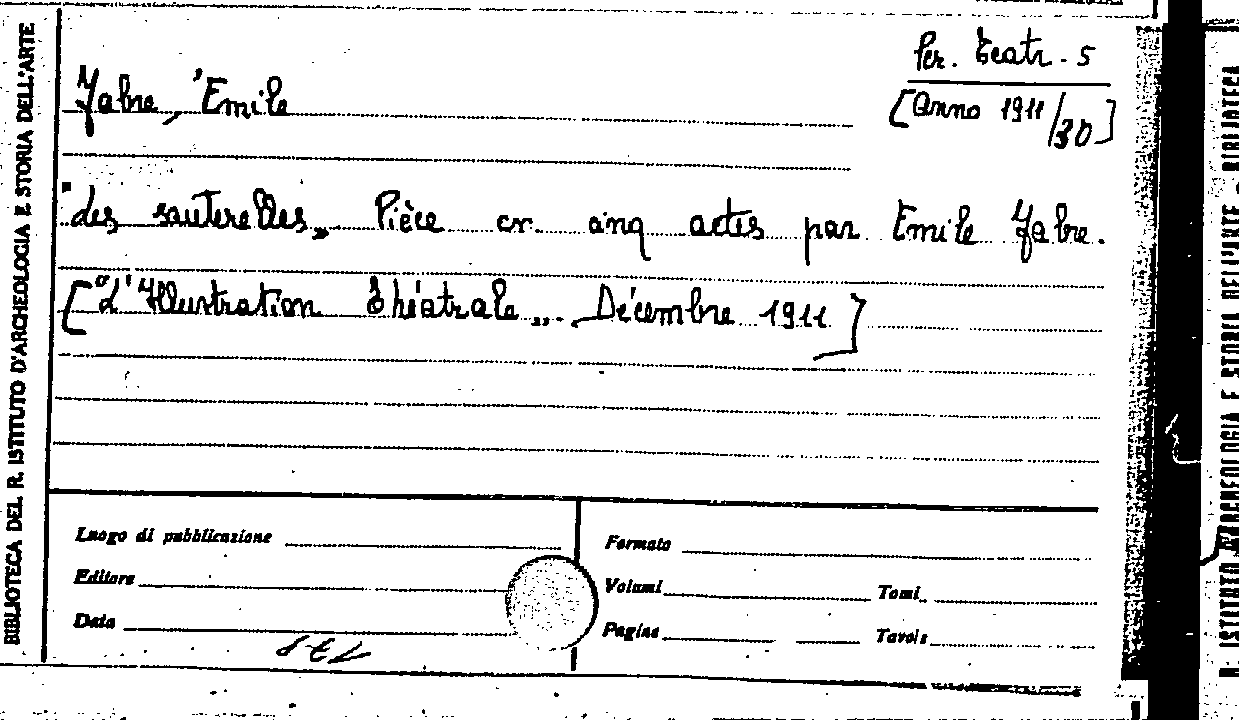 BIBLIOTECA DEL R. ISTITUTO D'ARCHEOLOGIA E STORIA DELL'ARTE
Per. Teatr. - 5
[Anno 1911/30]
Fabre, Emile
"Les sauterelles„ Pièce en cinq actes par Emile Fabre.
["L'Illustration Théatrale„. Décembre 1911]
Luogo di pubblicazione
Editore
Data
Formato
Volumi Tomi
Pagine Tavole
R. ISTITUTO D'ARCHEOLOGIA E STORIA DELL'ARTE - BIBLIOTECA